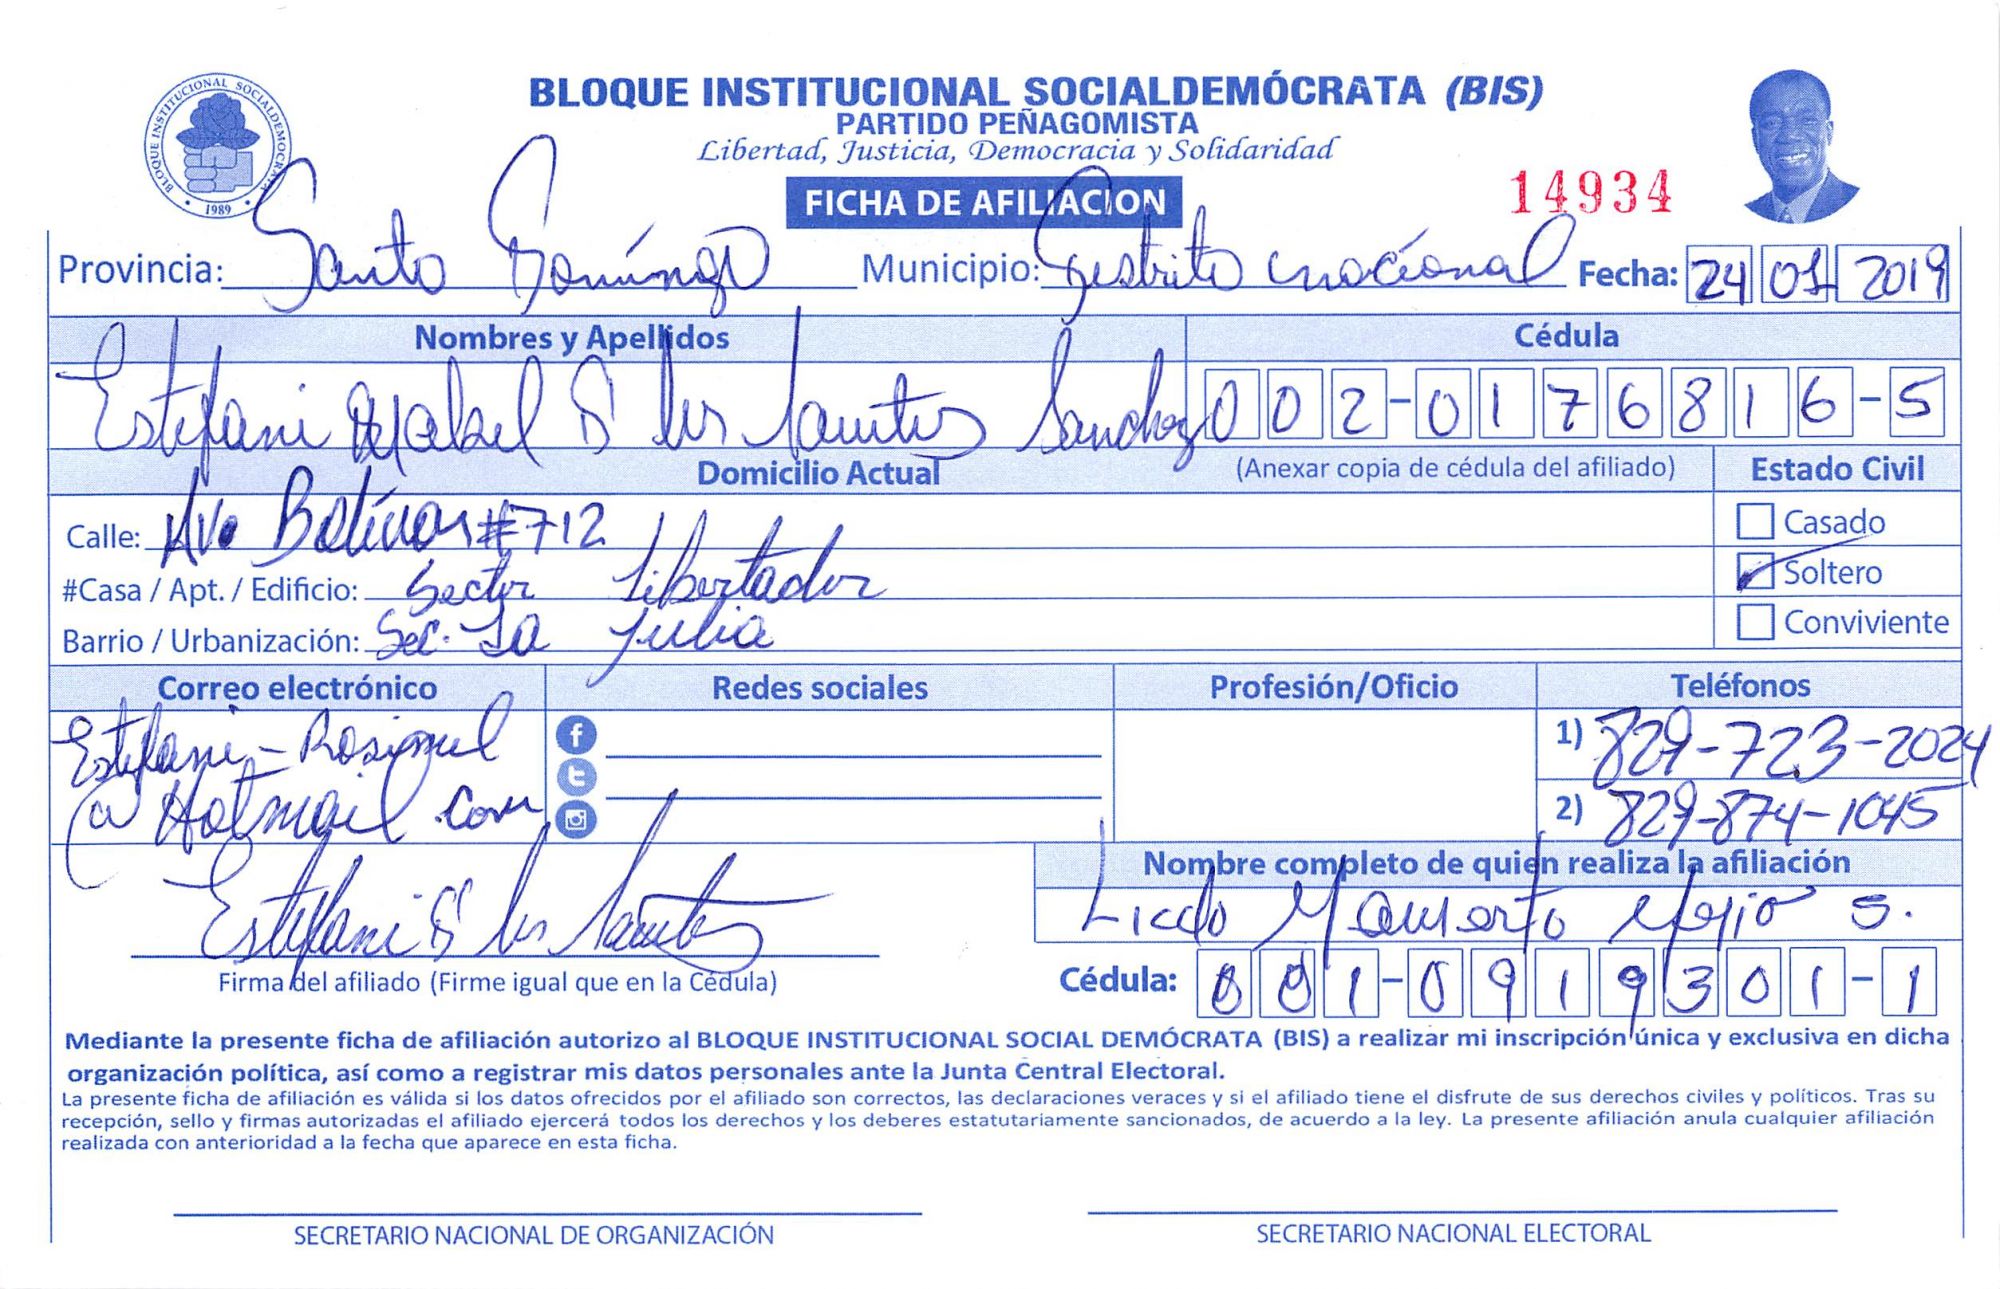 BLOQUE INSTITUCIONAL SOCIALDEMÓCRATA (BIS)
PARTIDO PEÑAGOMISTA
Libertad, Justicia, Democracia y Solidaridad
BLOQUE INSTITUCIONAL SOCIALDEMOCRATA
1989
FICHA DE AFILIACION
14934
Provincia: Santo Domingo Municipio: Distrito nacional Fecha: 24 01 2019
Nombres y Apellidos Cédula
Estefani de los Santos Sanchez 002-0176816-5
Domicilio Actual (Anexar copia de cédula del afiliado) Estado Civil
Calle: Ave Bolívar #712 Casado
#Casa / Apt. / Edificio: Sector Libertador Soltero
Barrio / Urbanización: Sec. La Julia Conviviente
Correo electrónico Redes sociales Profesión/Oficio Teléfonos
Estefani-Rosimel 1) 829-723-2024
@Hotmail.com 2) 829-874-1045
Nombre completo de quien realiza la afiliación
Estefani de los Santos Licdo Mamerto Mejia S.
Firma del afiliado (Firme igual que en la Cédula) Cédula: 001-0919301-1
Mediante la presente ficha de afiliación autorizo al BLOQUE INSTITUCIONAL SOCIAL DEMÓCRATA (BIS) a realizar mi inscripción única y exclusiva en dicha
organización política, así como a registrar mis datos personales ante la Junta Central Electoral.
La presente ficha de afiliación es válida si los datos ofrecidos por el afiliado son correctos, las declaraciones veraces y si el afiliado tiene el disfrute de sus derechos civiles y políticos. Tras su
recepción, sello y firmas autorizadas el afiliado ejercerá todos los derechos y los deberes estatutariamente sancionados, de acuerdo a la ley. La presente afiliación anula cualquier afiliación
realizada con anterioridad a la fecha que aparece en esta ficha.
SECRETARIO NACIONAL DE ORGANIZACIÓN SECRETARIO NACIONAL ELECTORAL